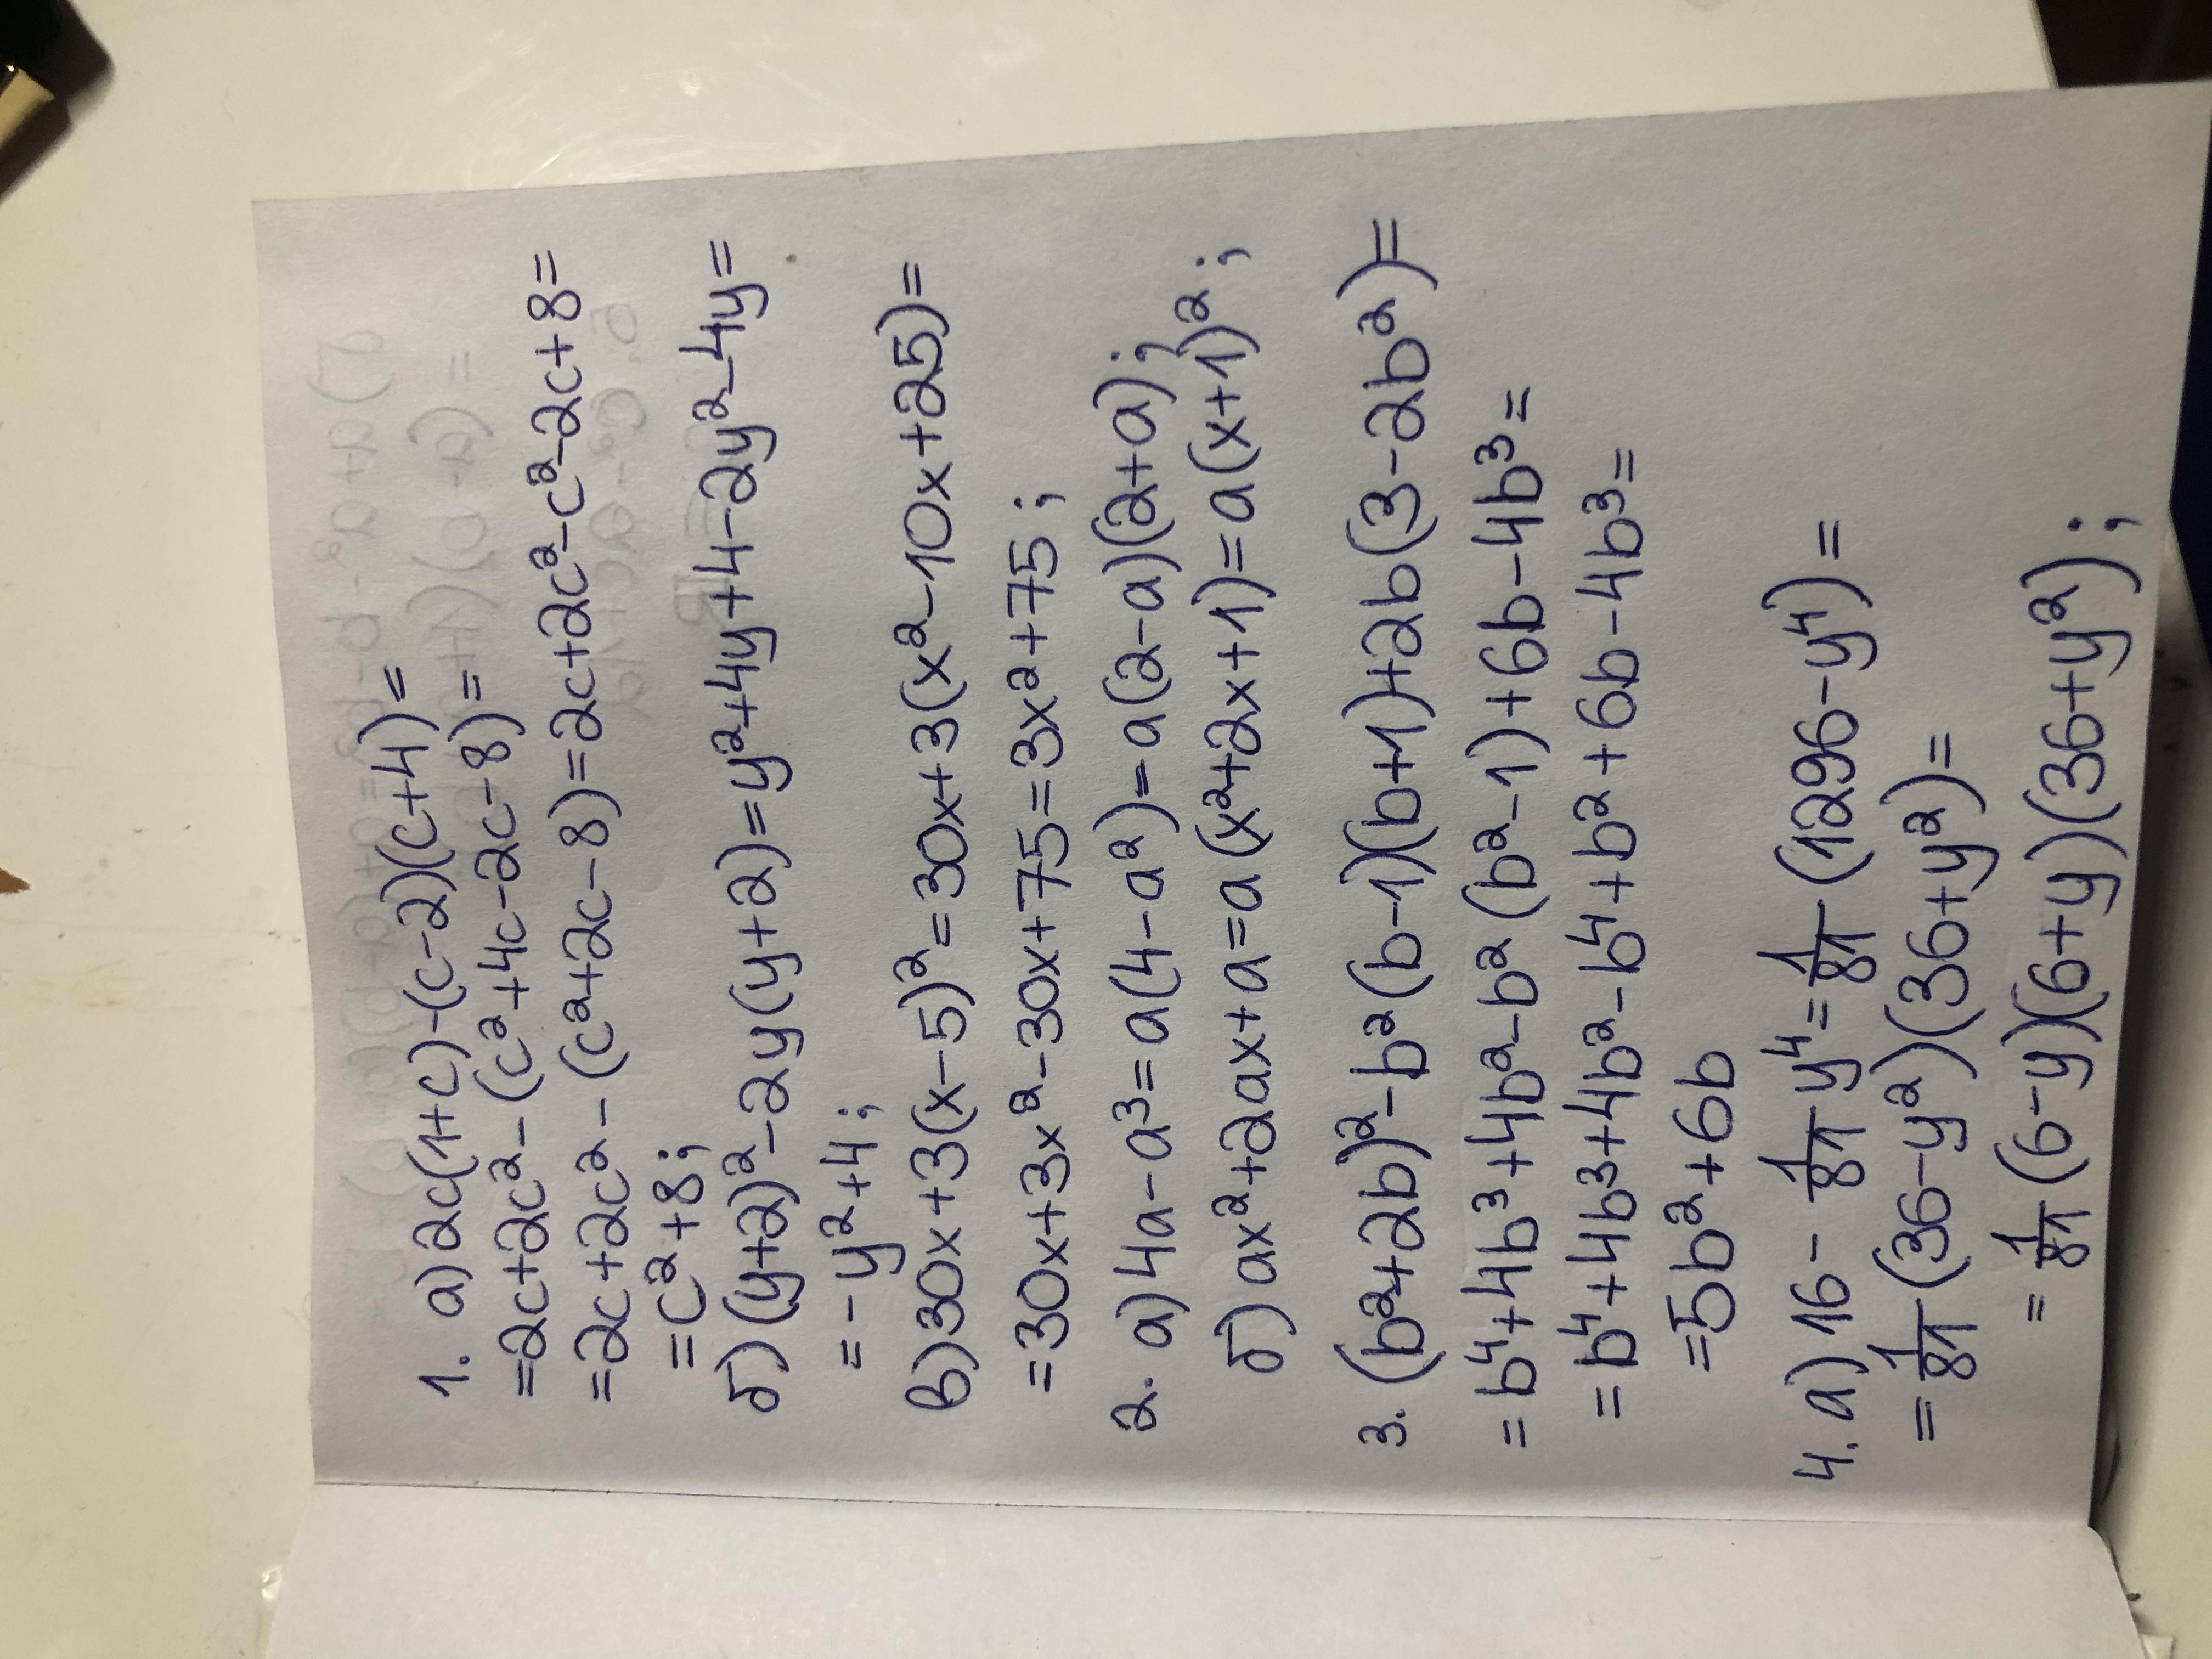 1. а) 2c(1+c)-(c-2)(c+4)=
=2c+2c²-(c²+4c-2c-8)=
=2c+2c²-(c²+2c-8)=2c+2c²-c²-2c+8=
=c²+8;
б) (y+2)²-2y(y+2)=y²+4y+4-2y²-4y=
=-y²+4;
в) 30x+3(x-5)²=30x+3(x²-10x+25)=
=30x+3x²-30x+75=3x²+75;
2. а) 4a-a³=a(4-a²)=a(2-a)(2+a);
б) ax²+2ax+a=a(x²+2x+1)=a(x+1)²;
3. (b²+2b)²-b²(b-1)(b+1)+2b(3-2b²)=
=b⁴+4b³+4b²-b²(b²-1)+6b-4b³=
=b⁴+4b³+4b²-b⁴+b²+6b-4b³=
=5b²+6b
4. а) 16-1/81y⁴=1/81(1296-y⁴)=
=1/81(36-y²)(36+y²)=
=1/81(6-y)(6+y)(36+y²);